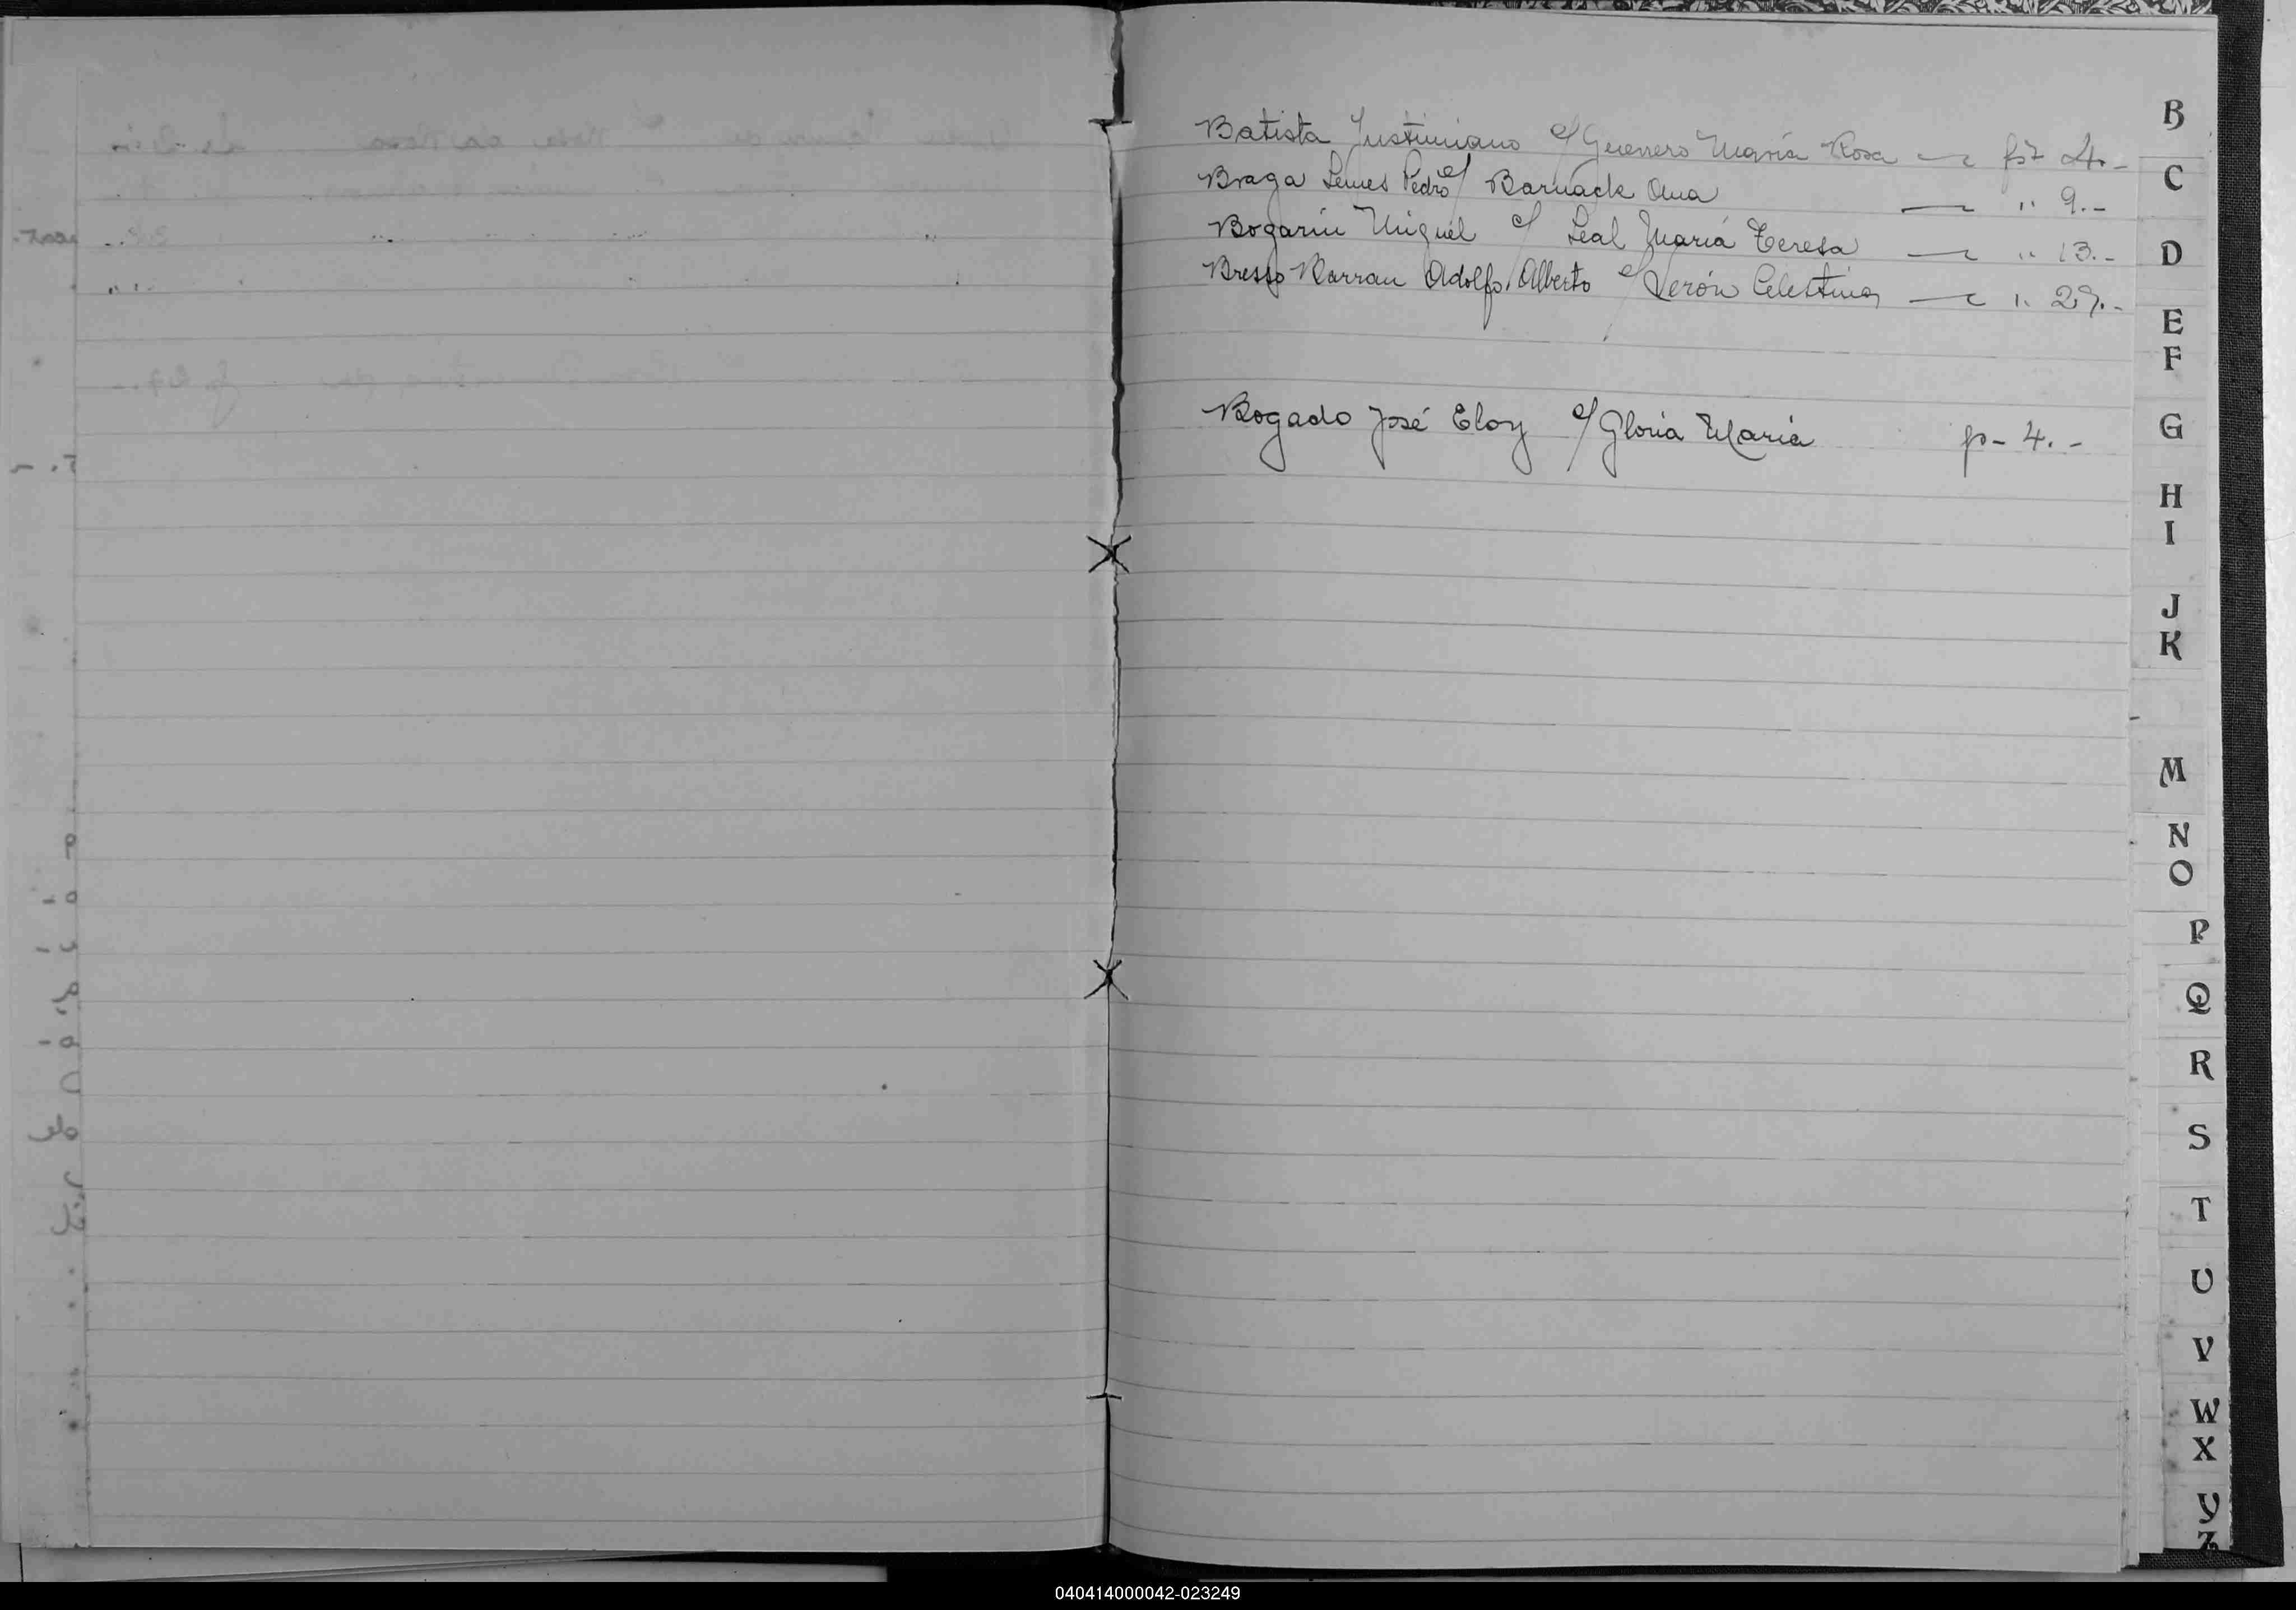 Batista Justiniano c/ Guerrero María Rosa — fs 4.-
Braga Lemes Pedro c/ Barnack Ana — " 9.-
Bogarin Miguel c/ Leal María Teresa — " 13.-
Bresso Barran Adolfo Alberto c/ Verón Celestina — " 29.-
Bogado José Eloy c/ Gloria María p- 4.-
B
C
D
E
F
G
H
I
J
K
M
N
O
P
Q
R
S
T
U
V
W
X
Y
Z
040414000042-023249